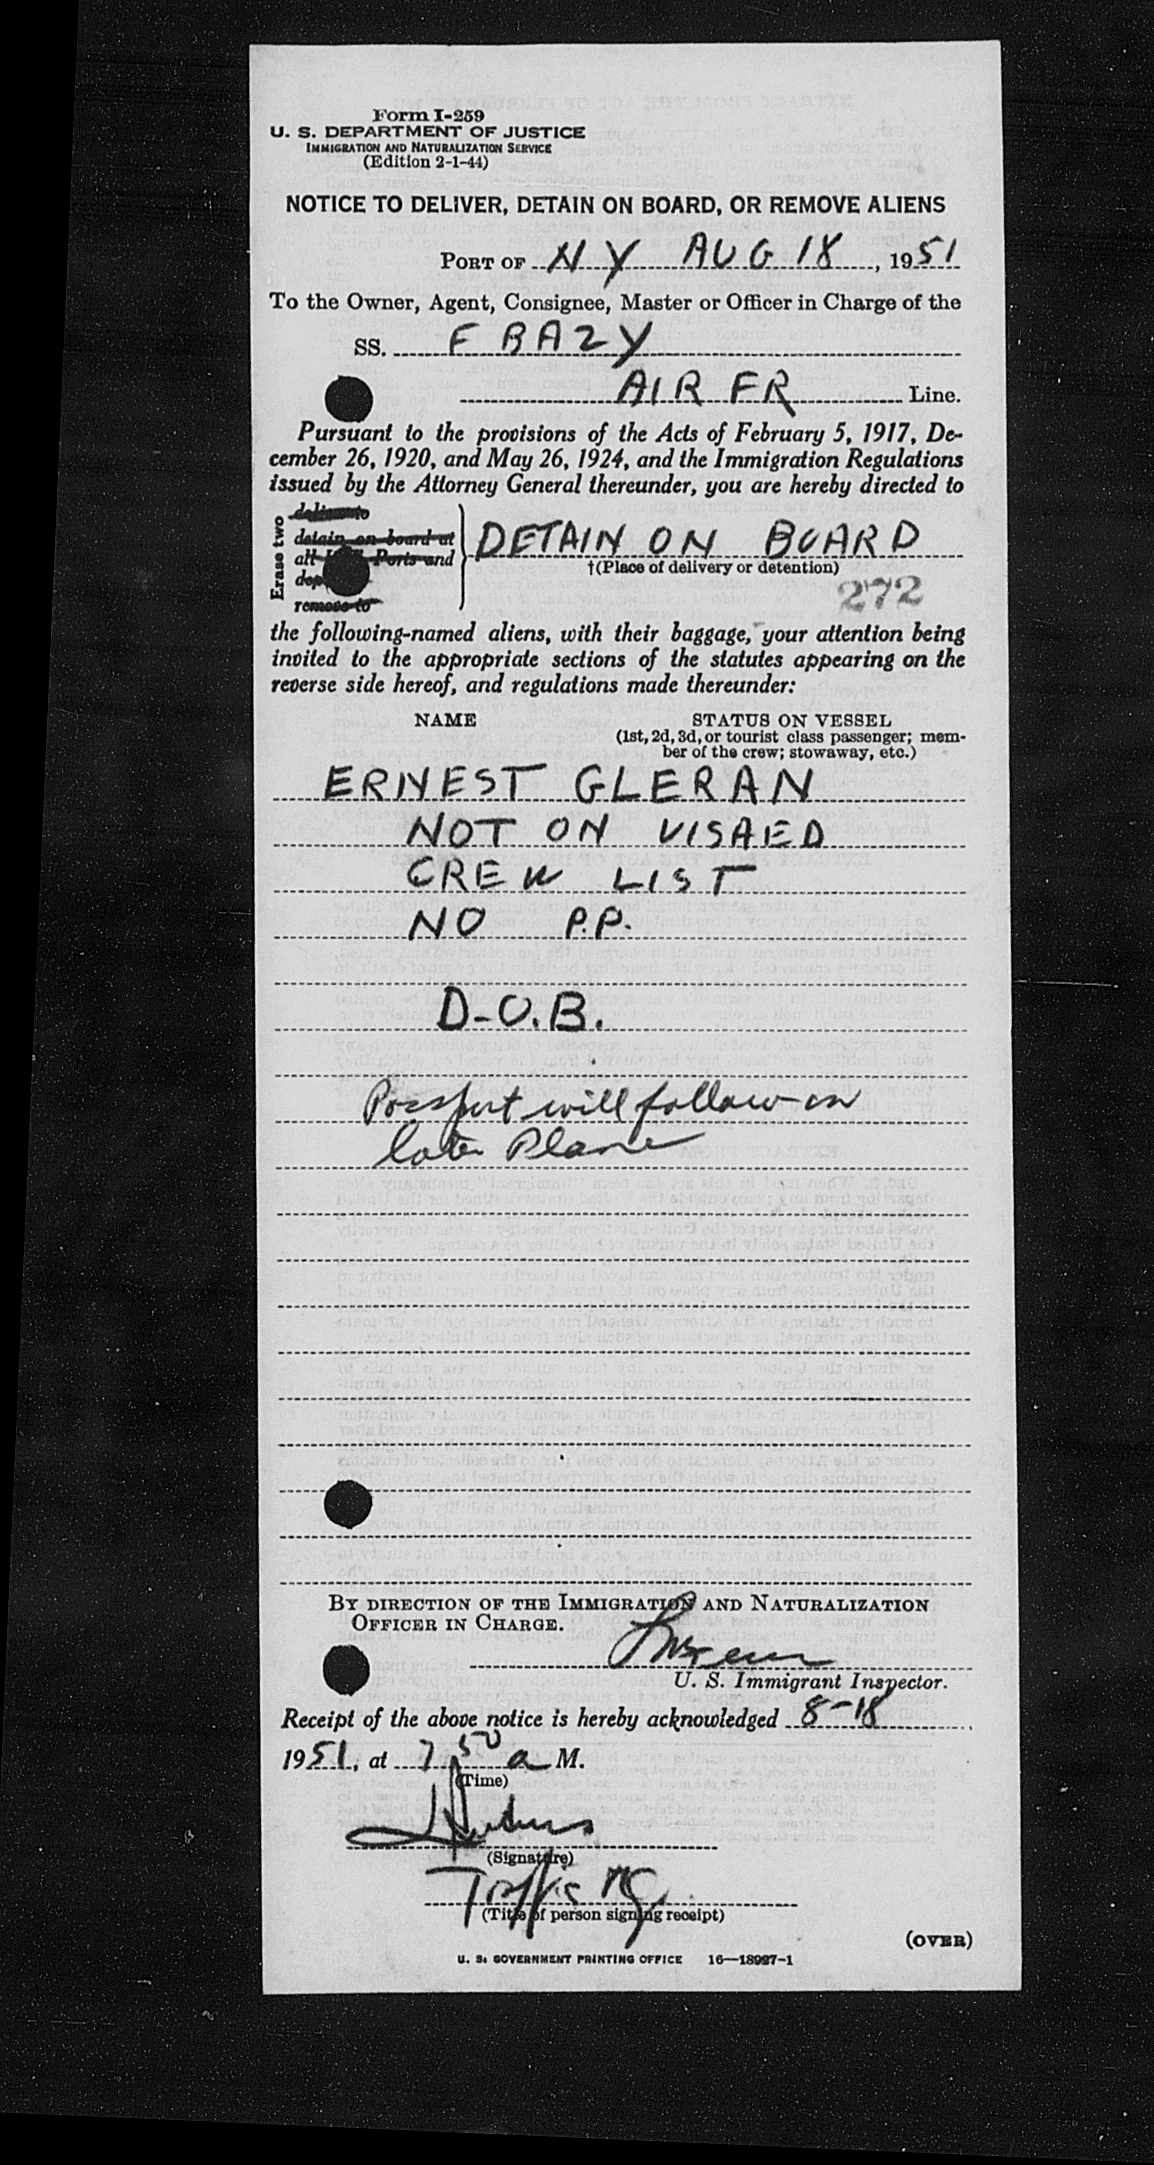 Form I-259
U. S. DEPARTMENT OF JUSTICE
IMMIGRATION AND NATURALIZATION SERVICE
(Edition 2-1-44)
NOTICE TO DELIVER, DETAIN ON BOARD, OR REMOVE ALIENS
PORT OF N Y AUG 18, 1951
To the Owner, Agent, Consignee, Master or Officer in Charge of the
SS. F BAZY
AIR FR Line.
Pursuant to the provisions of the Acts of February 5, 1917, De-
cember 26, 1920, and May 26, 1924, and the Immigration Regulations
issued by the Attorney General thereunder, you are hereby directed to
Erase two
deliver to
detain on board at
all Ports and
remove to
DETAIN ON BOARD
†(Place of delivery or detention)
272
the following-named aliens, with their baggage, your attention being
invited to the appropriate sections of the statutes appearing on the
reverse side hereof, and regulations made thereunder:
NAME STATUS ON VESSEL
(1st, 2d, 3d, or tourist class passenger; mem-
ber of the crew; stowaway, etc.)
ERNEST GLERAN
NOT ON VISAED
CREW LIST
NO P.P.
D-O.B.
Passport will follow on
later Plane
BY DIRECTION OF THE IMMIGRATION AND NATURALIZATION
OFFICER IN CHARGE.
U. S. Immigrant Inspector.
Receipt of the above notice is hereby acknowledged 8-18
1951, at 7 50 a M.
(Time)
(Signature)
Traffic
(Title of person signing receipt)
(OVER)
U. S. GOVERNMENT PRINTING OFFICE 16—18927-1